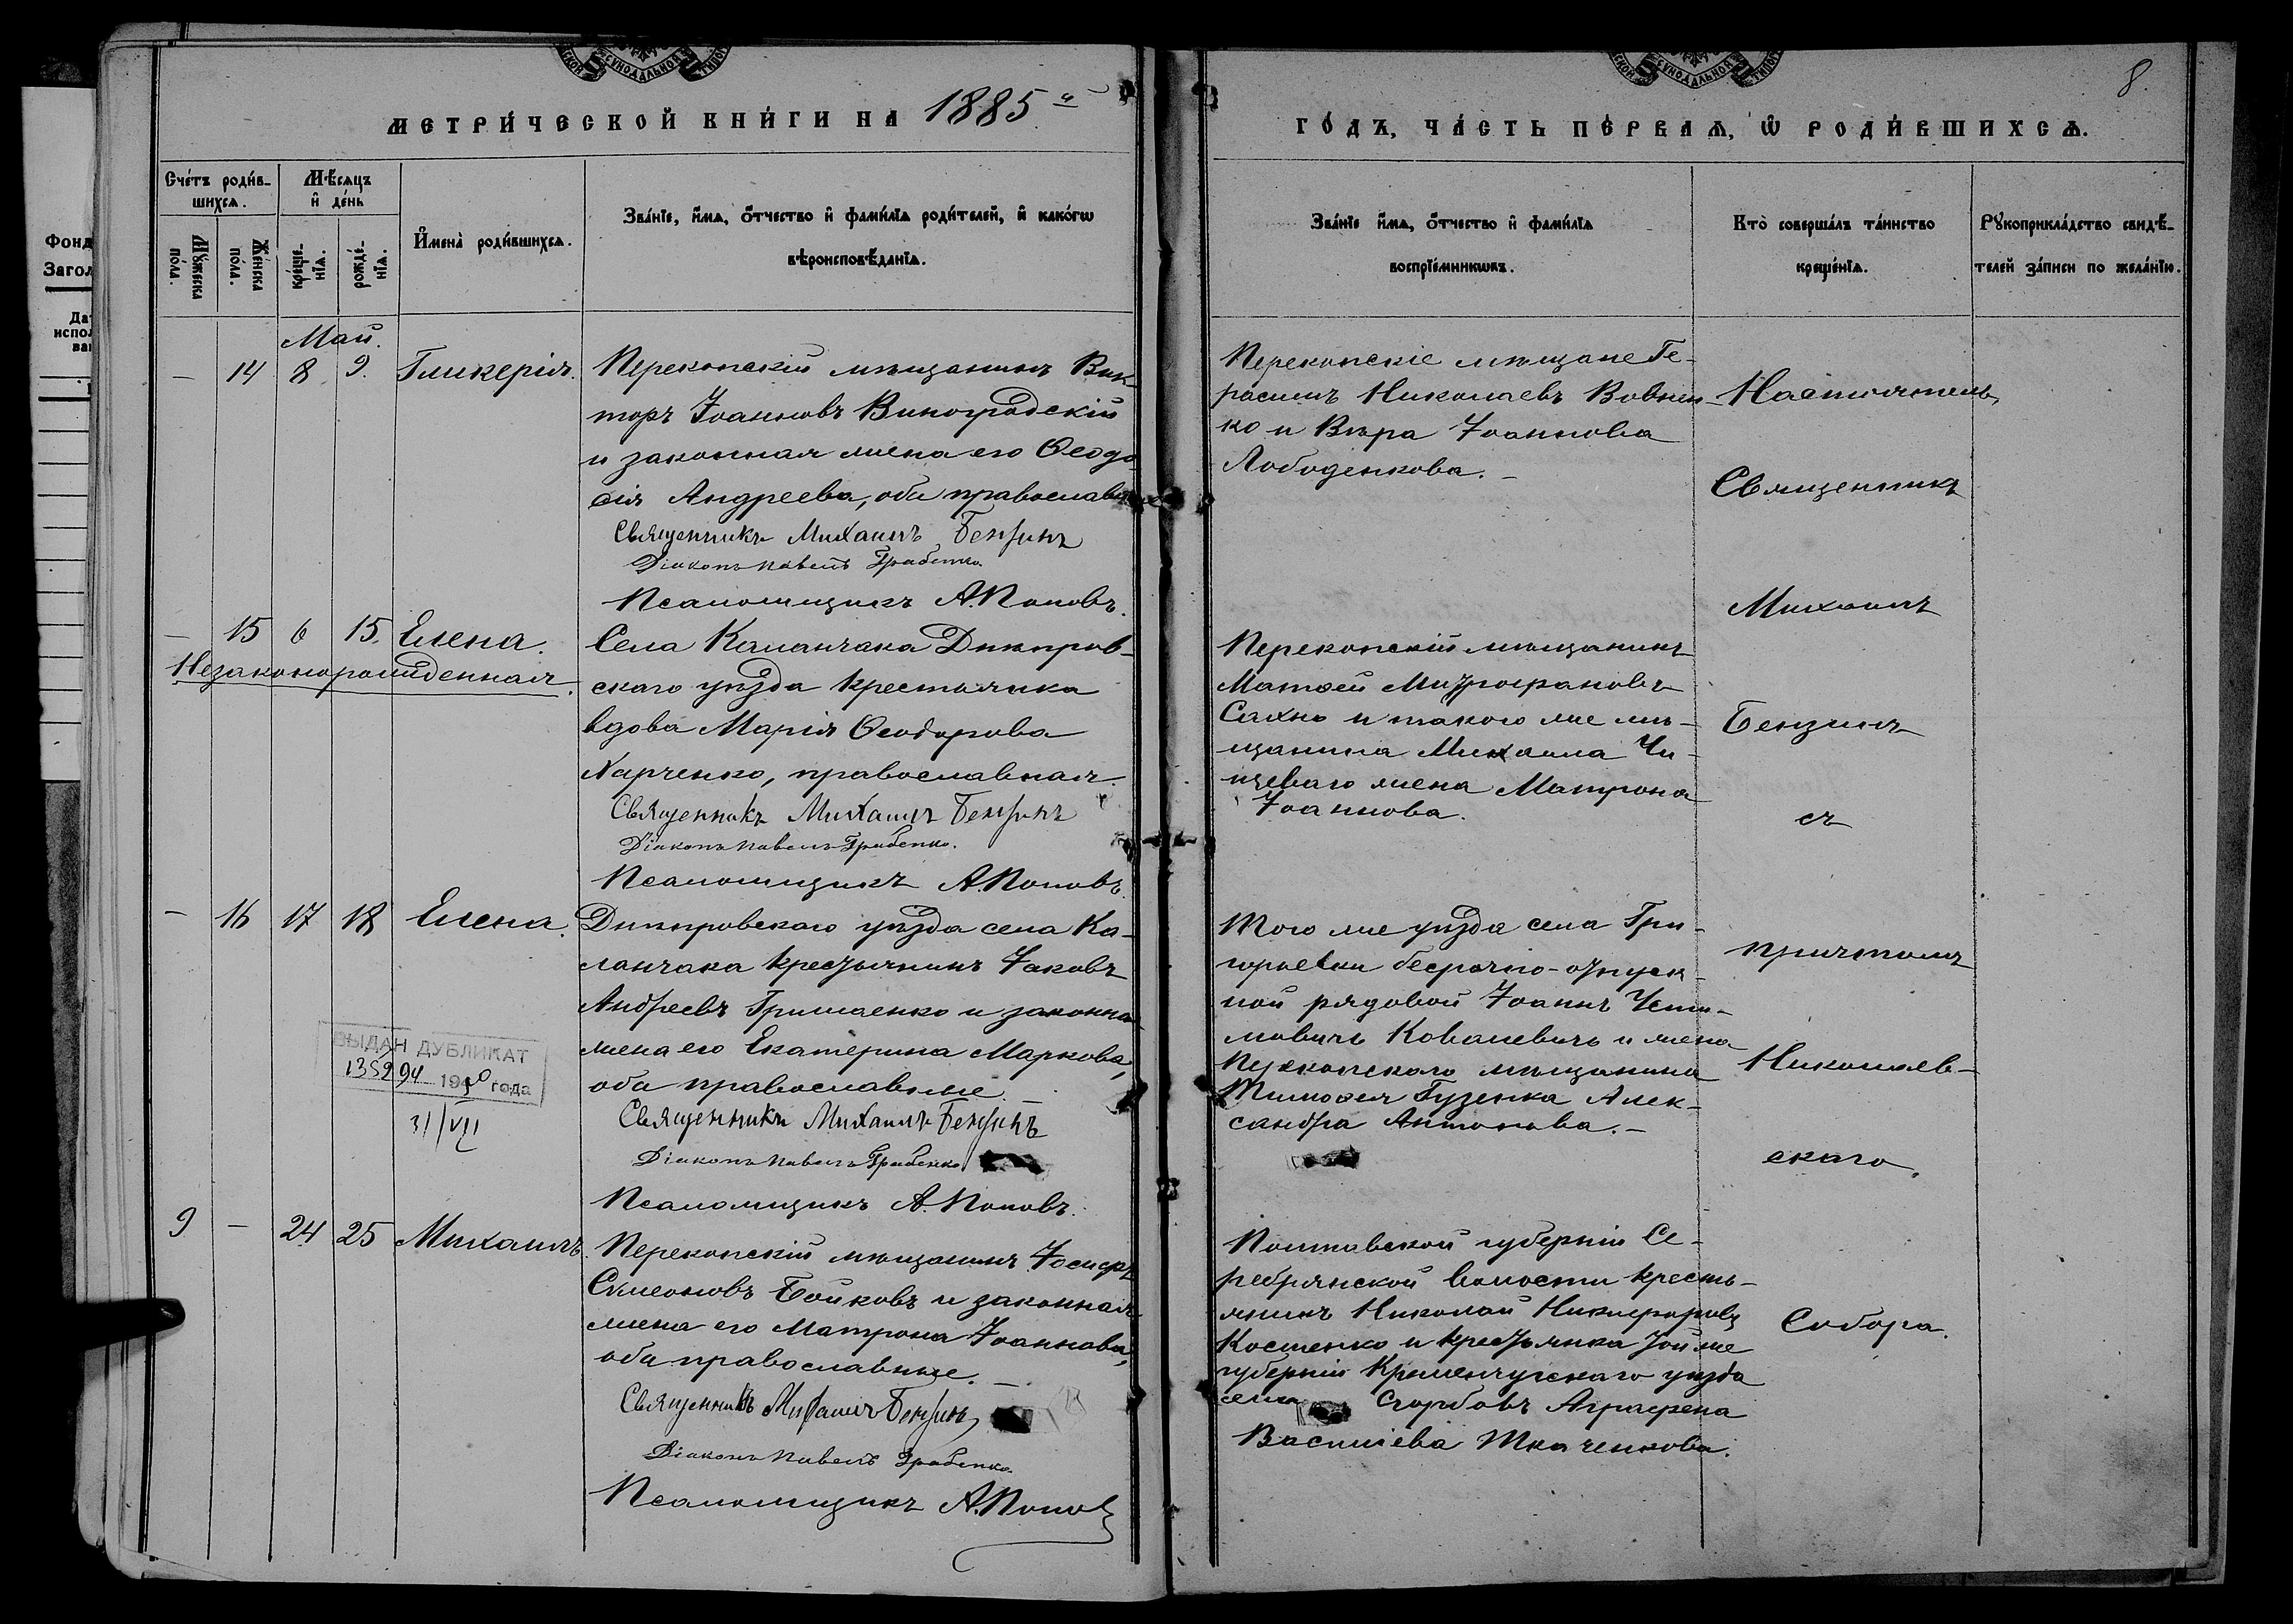 МЕТРИ́ЧЕСКОЙ КНИ́ГИ НА 1885й
ГО́ДЪ, ЧА́СТЬ ПЕ́РВАѦ, Ѡ РОДИ́ВШИХСѦ.
8.
Сче́тъ роди́в-
шихсѧ.
Мѣ́сѧцъ
и҆ де́нь
Мꙋ́жеска
по́ла.
Же́нска
по́ла.
креще́-
нїѧ.
рожде́-
нїѧ.
И҆мена̀ роди́вшихсѧ.
Зва́нїе, и҆́мѧ, ѻ҆́тчество и҆ фами́лїѧ роди́телей, и҆ како́гѡ
вѣроисповѣ́данїѧ.
Зва́нїе и҆́мѧ, ѻ҆́тчество и҆ фами́лїѧ
воспрїе́мникѡвъ.
Кто̀ соверша́лъ та́инство
креще́нїѧ.
Рꙋкоприкла́дство свидѣ́-
телей за́писи по жела́нїю.
Май.
— 14 8 9. Гликерія.
Перекопскій мѣщанинъ Вик-
торъ Іоанновъ Виноградскій
и законная жена его Ѳеодо-
сія Андреева, оба православн
Священникъ Михаилъ Бензинъ
Діаконъ Павелъ Грабенко.
Псаломщикъ А. Поповъ.
Перекопскіе мѣщане Ге-
расимъ Николаевъ Вовнен-
ко и Вѣра Іоаннова
Лободенкова. —
— 15 6 15. Елена.
Незаконорожденная.
Села Каланчака Днѣпров-
скаго уѣзда крестьянка
вдова Марія Ѳеодорова
Харченко, православная.
Священникъ Михаилъ Бензинъ
Діаконъ Павелъ Грабенко.
Псаломщикъ А. Поповъ.
Перекопскій мѣщанинъ
Матѳей Митрофановъ
Сахно и такого же мѣ-
щанина Михаила Чи-
щеваго жена Матрона
Іоаннова.
— 16 17 18 Елена.
Днѣпровскаго уѣзда села Ка-
ланчака крестьянинъ Іаковъ
Андреевъ Гришаенко и законна
жена его Екатерина Маркова,
оба православные. —
Священникъ Михаилъ Бензинъ
Діаконъ Павелъ Грабенко
Псаломщикъ А. Поповъ.
ВЫДАН ДУБЛИКАТ
135294 1940 года
31/VII
Того же уѣзда села Гри-
горьевки безсрочно-отпуск-
ной рядовой Іоаннъ
Ковалевичъ и жена
Перекопскаго мѣщанина
Тимоѳея Гузенка Алек-
сандра Антонова. —
9 — 24 25 Михаилъ.
Перекопскій мѣщанинъ Іосифъ
Сѵмеоновъ Бойковъ и законная
жена его Матрона Іоаннова,
оба православные. —
Священникъ Михаилъ Бензинъ
Діаконъ Павелъ Грабенко.
Псаломщикъ А. Поповъ
Полтавской губерніи Се-
ребрянской волости кресть-
янинъ Николай Никифоровъ
Костенко и крестьянка той же
губерніи Кременчугскаго уѣзда
села Агрофена
Василіева Ткаченкова.
Настоятель,
Священникъ
Михаилъ
Бензинъ
съ
причтомъ
Николаев-
скаго
Собора.
Фонд
Загол
Дат
испол
ва